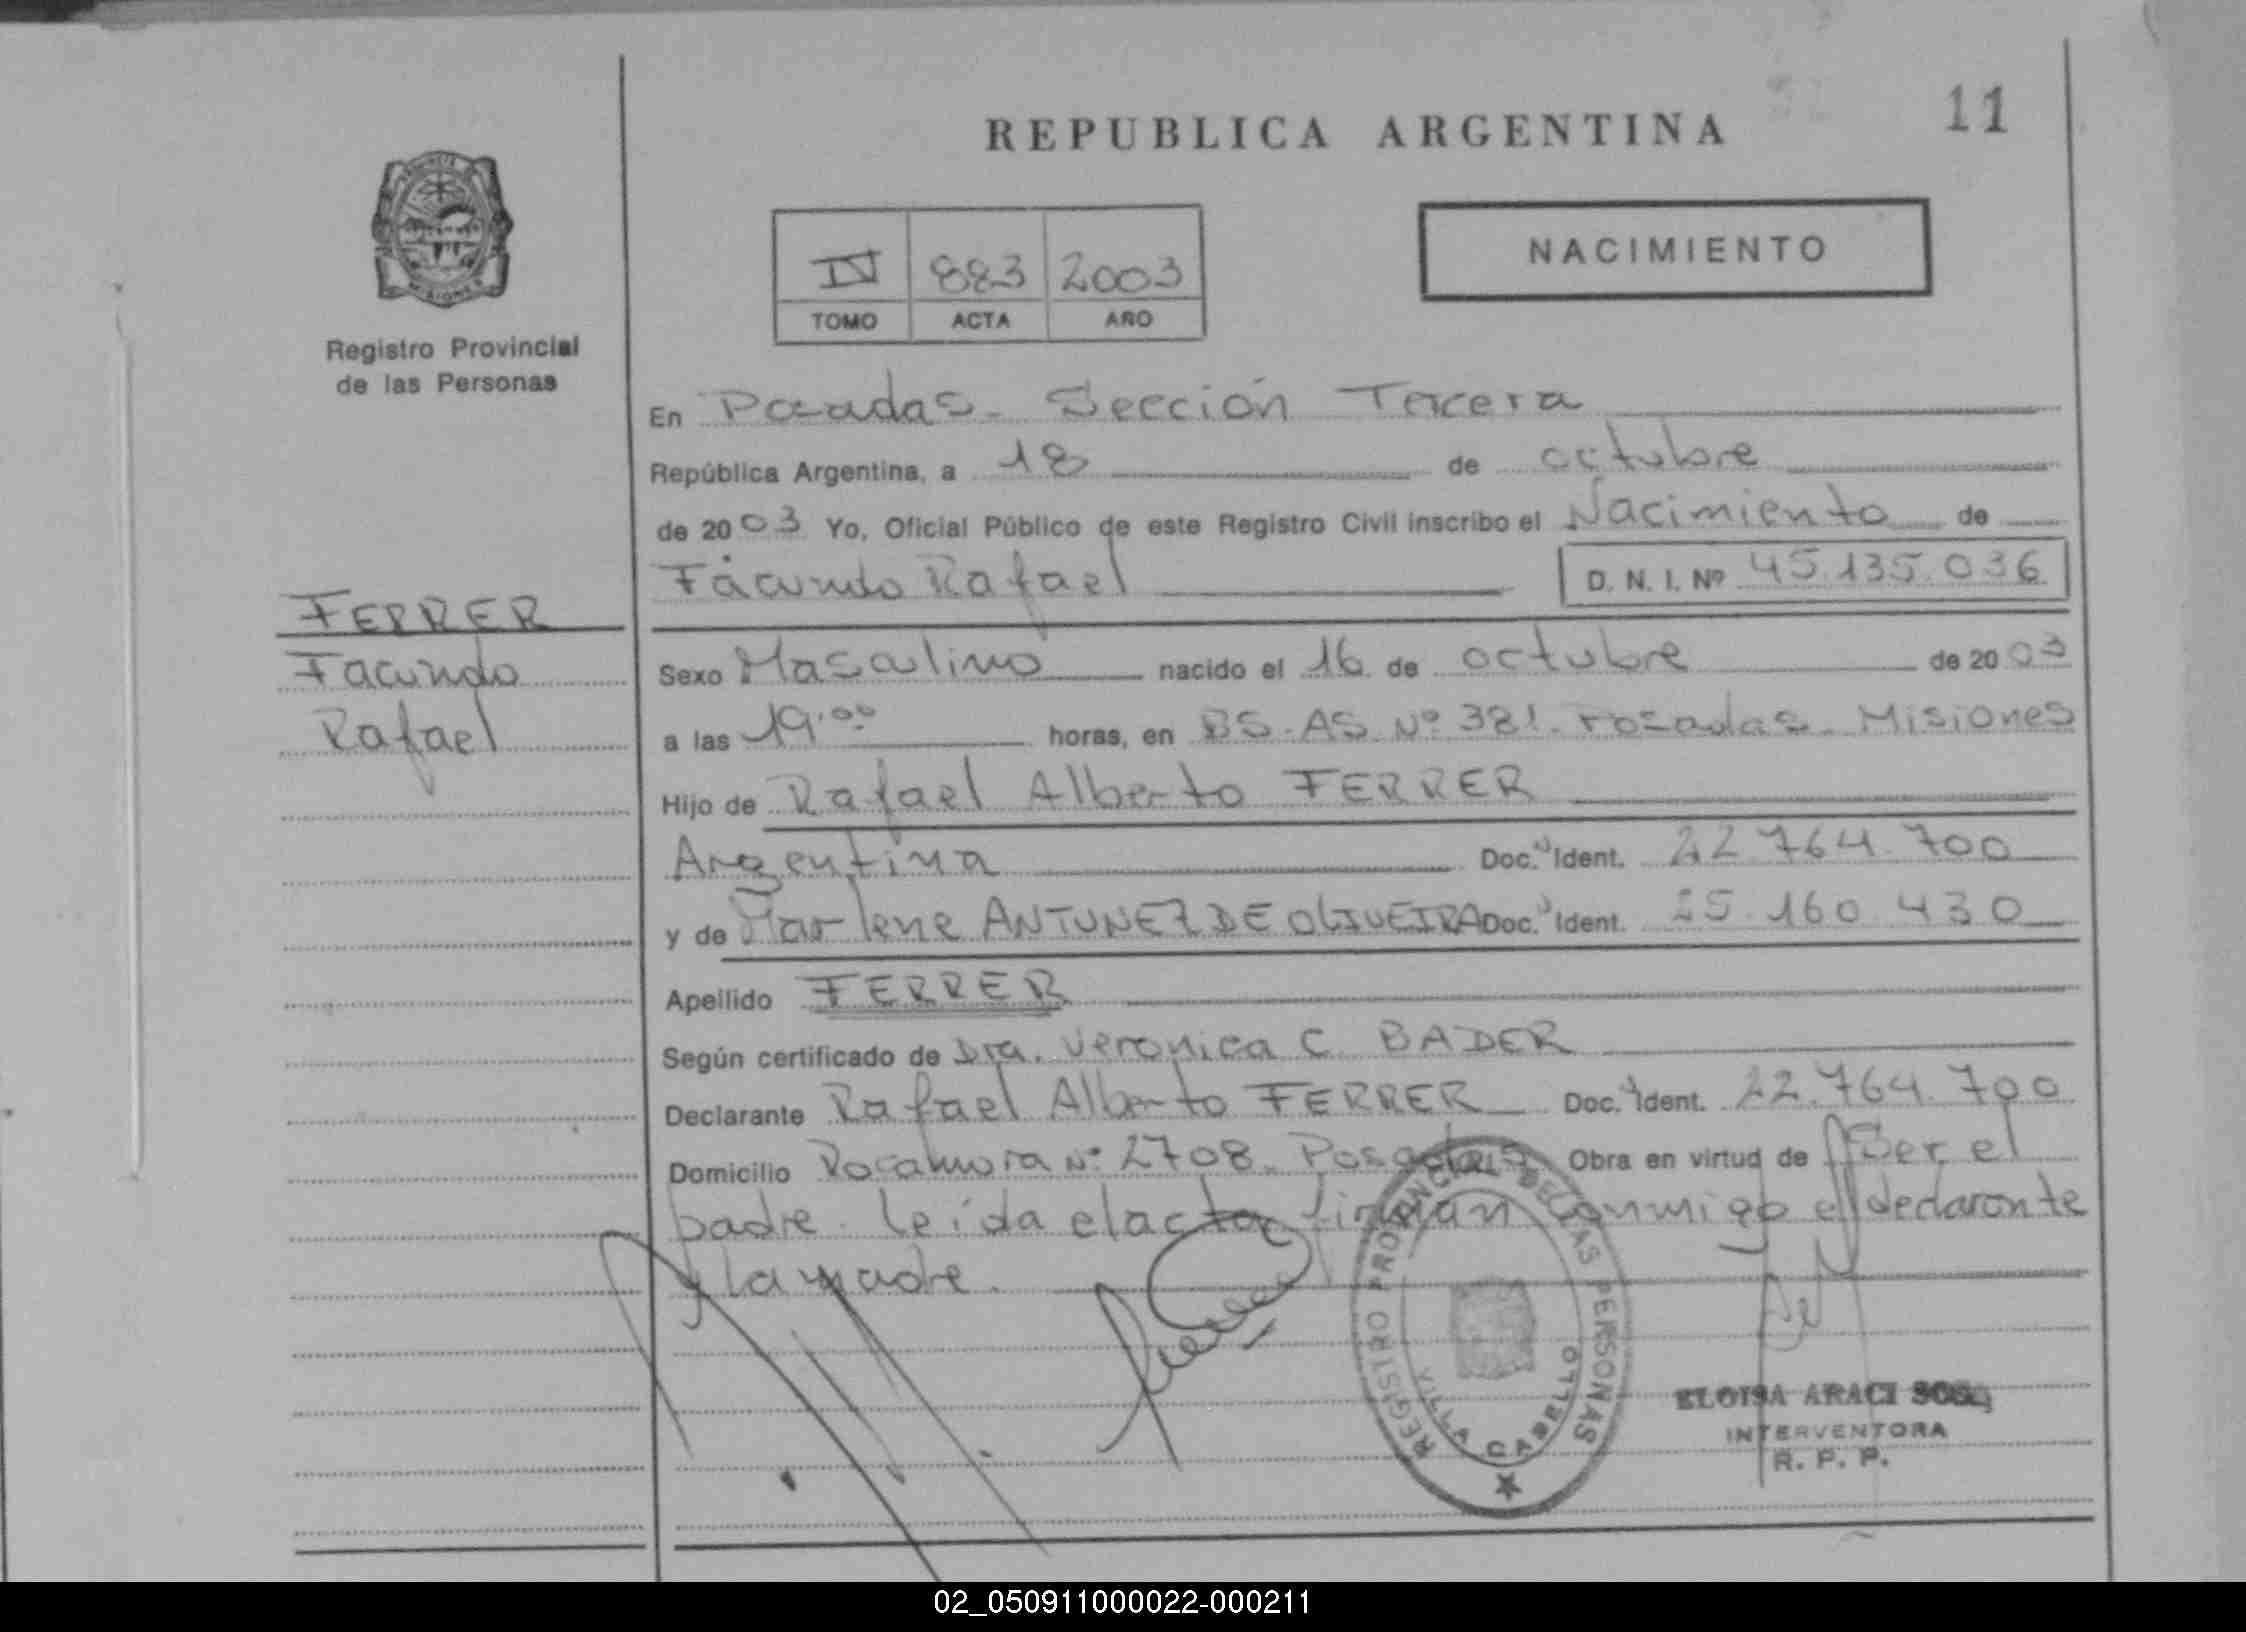 REPUBLICA ARGENTINA
11
MISIONES
Registro Provincial
de las Personas
IV 883 2003
TOMO ACTA AÑO
NACIMIENTO
En Posadas - Sección Tercera
República Argentina, a 18 de octubre
de 2003 Yo, Oficial Público de este Registro Civil inscribo el Nacimiento de
Facundo Rafael D. N. I. Nº 45.135.036
FERRER
Facundo
Rafael
Sexo Masculino nacido el 16 de octubre de 2003
a las 19.00 horas, en BS. AS. Nº 381. Posadas - Misiones
Hijo de Rafael Alberto FERRER
Argentina Doc. Ident. 22.764.700
y de Marlene ANTUNEZ DE OLIVEIRA Doc. Ident. 25.160.430
Apellido FERRER
Según certificado de Dra. Veronica C. BADER
Declarante Rafael Alberto FERRER Doc. Ident. 22.764.700
Domicilio Rocamora Nº 2708 - Posadas Obra en virtud de Ser el
padre. Leída el acta firman conmigo el declarante
y la madre.
REGISTRO PROVINCIAL DE LAS PERSONAS
VILLA CABELLO
ELOISA ARACI
INTERVENTORA
R. P. P.
02_050911000022-000211